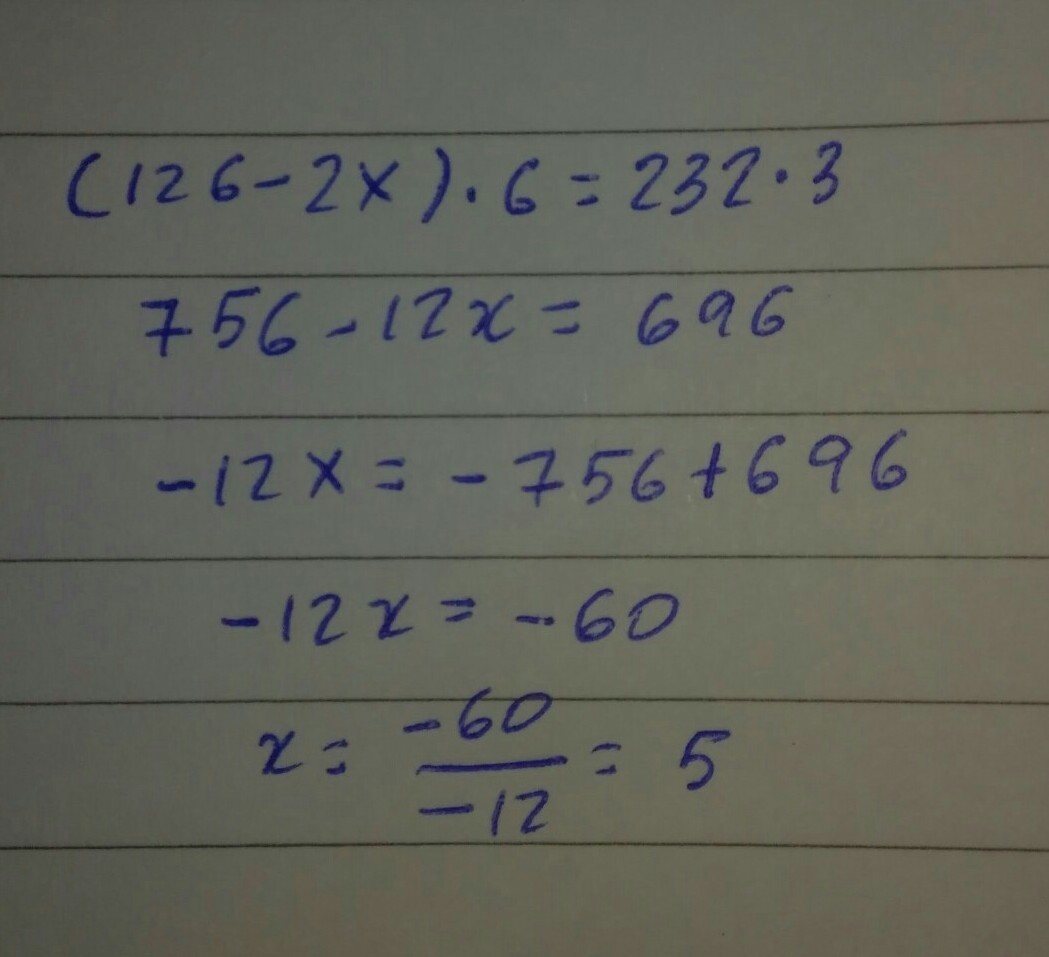 (126-2x).6=232·3
756-12x=696
-12x=-756+696
-12x=-60
x=-60/-12=5